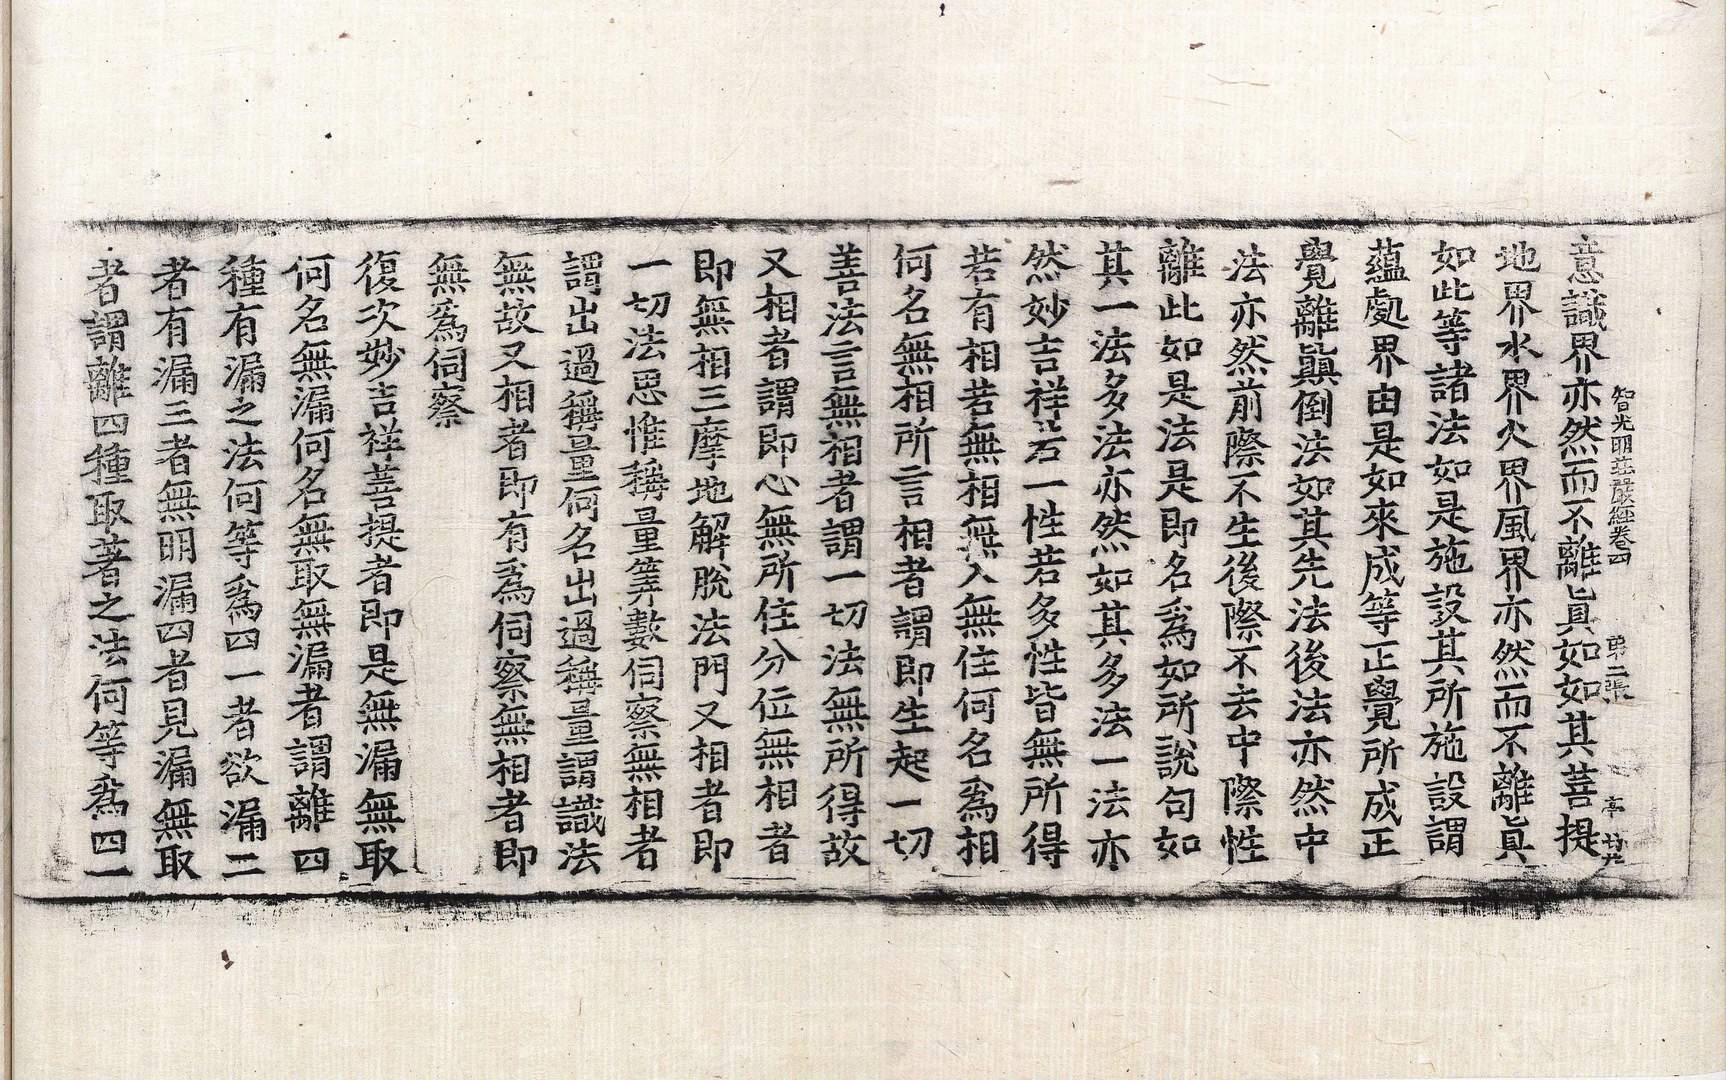 智光明莊嚴經卷四 第二張 亭
意識界亦然而不離眞如如其菩提
地界水界火界風界亦然而不離眞
如此等諸法如是施設其所施設謂
蘊處界由是如來成等正覺所成正
覺離顚倒法如其先法後法亦然中
法亦然前際不生後際不去中際性
離此如是法是即名爲如所說句如
其一法多法亦然如其多法一法亦
然妙吉祥若一性若多性皆無所得
若有相若無相無入無住何名爲相
何名無相所言相者謂即生起一切
善法言無相者謂一切法無所得故
又相者謂即心無所住分位無相者
即無相三摩地解脫法門又相者即
一切法思惟稱量筭數伺察無相者
謂出過稱量何名出過稱量謂識法
無故又相者即有爲伺察無相者即
無爲伺察
復次妙吉祥菩提者即是無漏無取
何名無漏何名無取無漏者謂離四
種有漏之法何等爲四一者欲漏二
者有漏三者無明漏四者見漏無取
者謂離四種取著之法何等爲四一